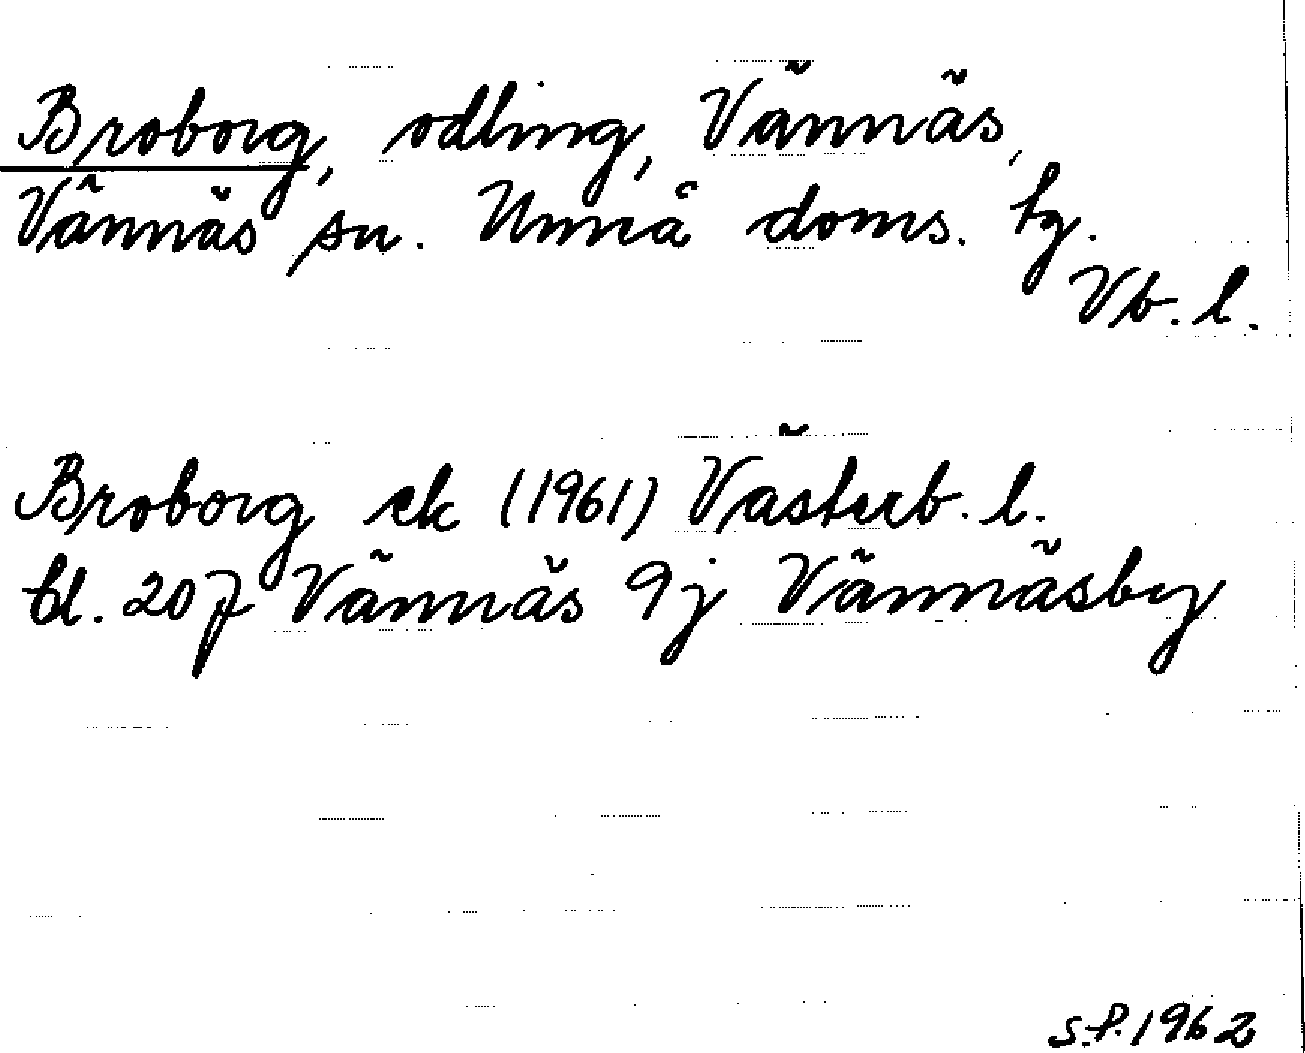 Broborg, odling, Vännäs,
Vännäs sn. Umeå doms. tg.
Vb. l.
Broborg ek (1961) Västerb. l.
bl. 20 J Vännäs 9j Vännäsby
S.P. 1962